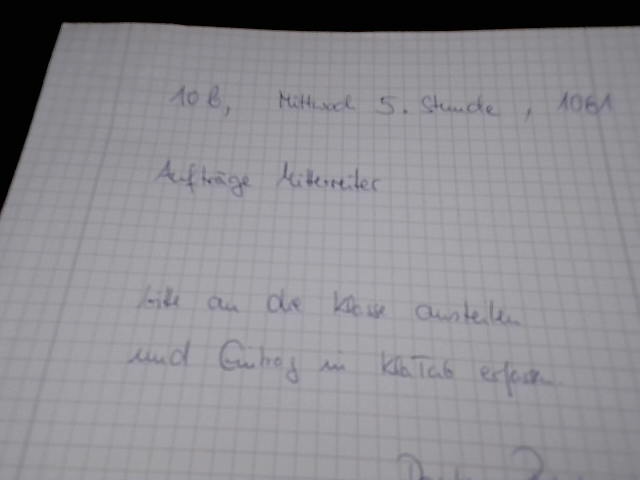 10B, Mittwoch 5. Stunde, 10B1
Aufträge Mitterreiter
bitte an die Klasse austeilen
und Eintrag in KlaTab erfassen